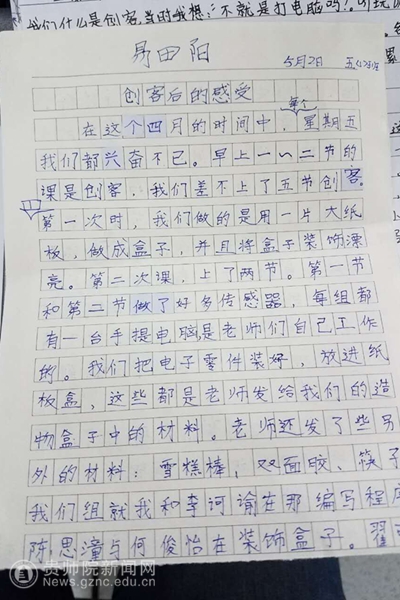 我们什么是创客,当时我想:不就是打电脑吗?可现
易田阳
5月2日 五(2)班
创客后的感受
在这个四月的时间中,每个星期五
我们都兴奋不已。早上一~二节的
课是创客,我们差不上了五节创客。
第一次时,我们做的是用一片大纸
板,做成盒子,并且将盒子装饰漂
亮。第二次课,上了两节。第一节
和第二节做了好多传感器,每组都
有一台手提电脑是老师们自己工作
的。我们把电子零件装好,放进纸
板盒,这些都是老师发给我们的造
物盒子中的材料。老师还发了些另
外的材料:雪糕棒,双面胶、筷子
我们组就我和李河谕在那编写程序
陈思潼与何俊怡在装饰盒子。翟
贵师院新闻网
News.gznc.edu.cn